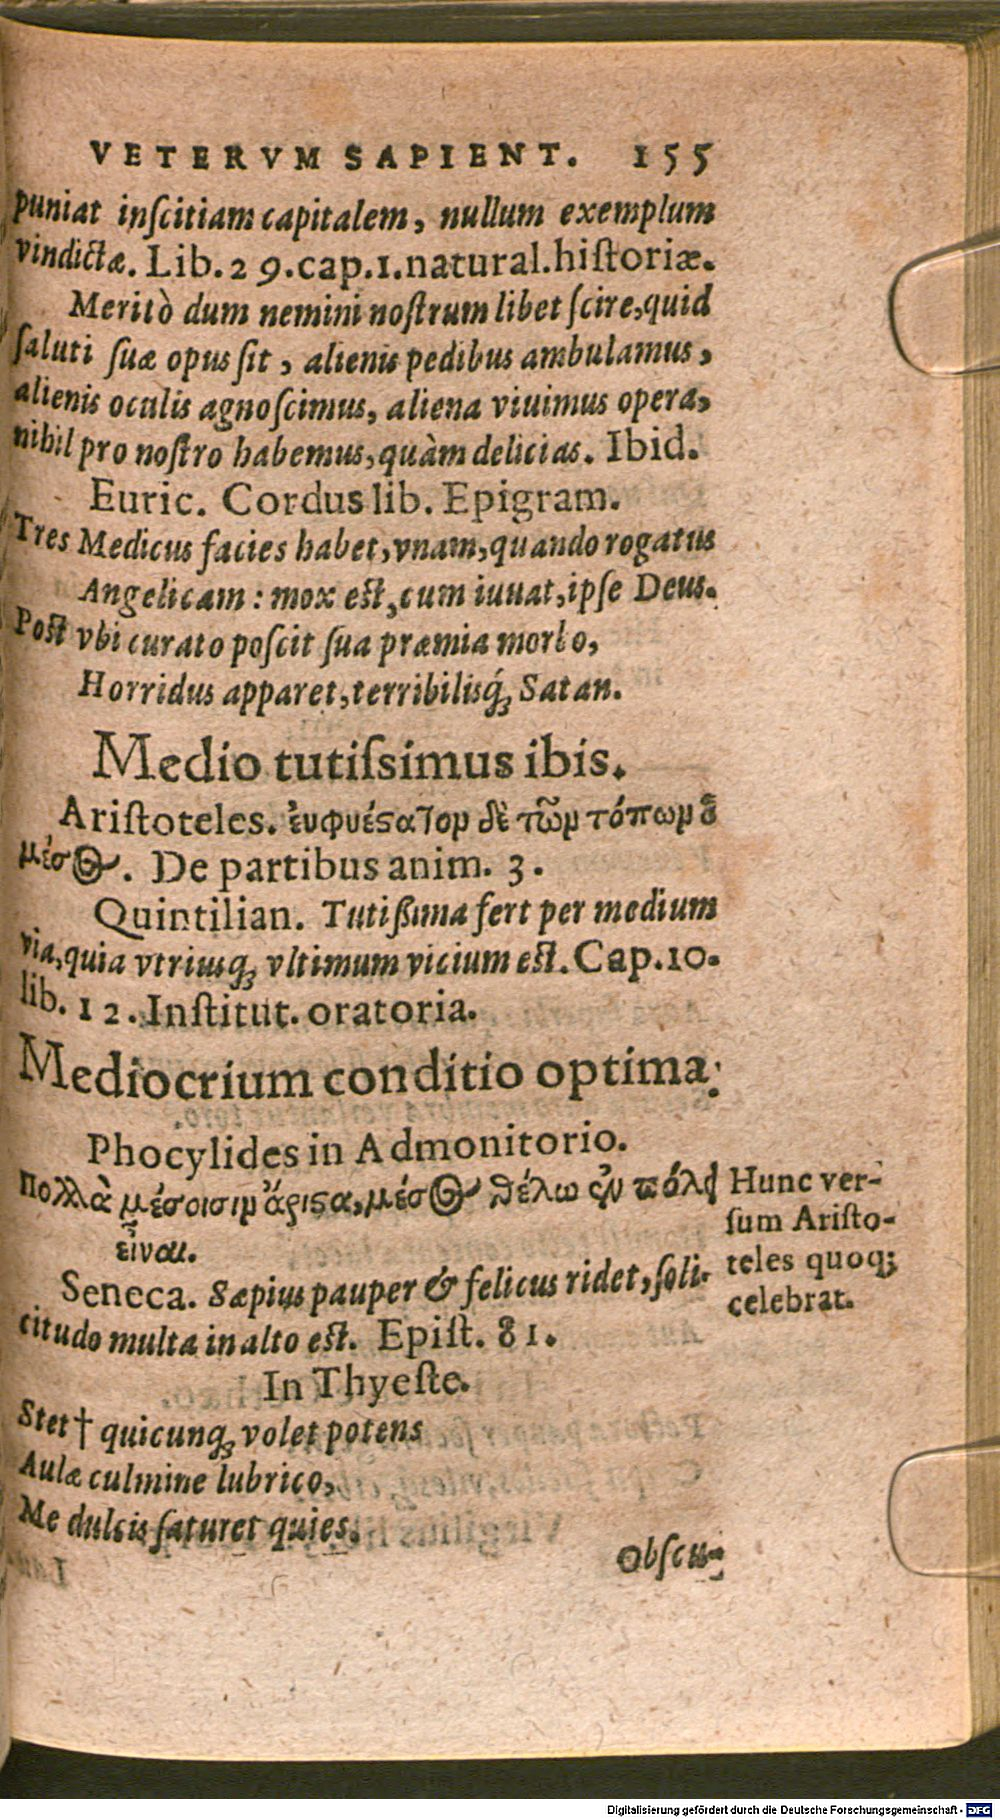 VETERVM SAPIENT. 155
puniat inſcitiam capitalem, nullum exemplum
vindictæ. Lib. 29. cap. 1. natural. hiſtoriæ.
Meritò dum nemini noſtrum libet ſcire, quid
ſaluti ſuæ opus ſit, alienis pedibus ambulamus,
alienis oculis agnoſcimus, aliena viuimus opera,
nihil pro noſtro habemus, quàm delicias. Ibid.
Euric. Cordus lib. Epigram.
Tres Medicus facies habet, vnam, quando rogatus
Angelicam: mox eſt, cum iuuat, ipſe Deus.
Poſt vbi curato poſcit ſua præmia morbo,
Horridus apparet, terribilisq́ꝫ Satan.
Medio tutiſsimus ibis.
Ariſtoteles. ἐυφυέϛατον δὲ τῶν τόπων ὁ
μέσος. De partibus anim. 3.
Quintilian. Tutißima fert per medium
via, quia vtriusqꝫ vltimum vicium eſt. Cap. 10.
lib. 12. Inſtitut. oratoria.
Mediocrium conditio optima.
Phocylides in Admonitorio.
πολλὰ μέσοισιν ἄριϛα, μέσος θέλω ἐν πόλει
εἶναι.
Hunc ver-
ſum Ariſto-
teles quoqꝫ
celebrat.
Seneca. Sæpius pauper & felicius ridet, ſoli-
citudo multa in alto eſt. Epiſt. 81.
In Thyeſte.
Stet † quicunqꝫ volet potens
Aulæ culmine lubrico,
Me dulcis ſaturet quies.
Obſcu-
Digitalisierung gefördert durch die Deutsche Forschungsgemeinschaft - DFG